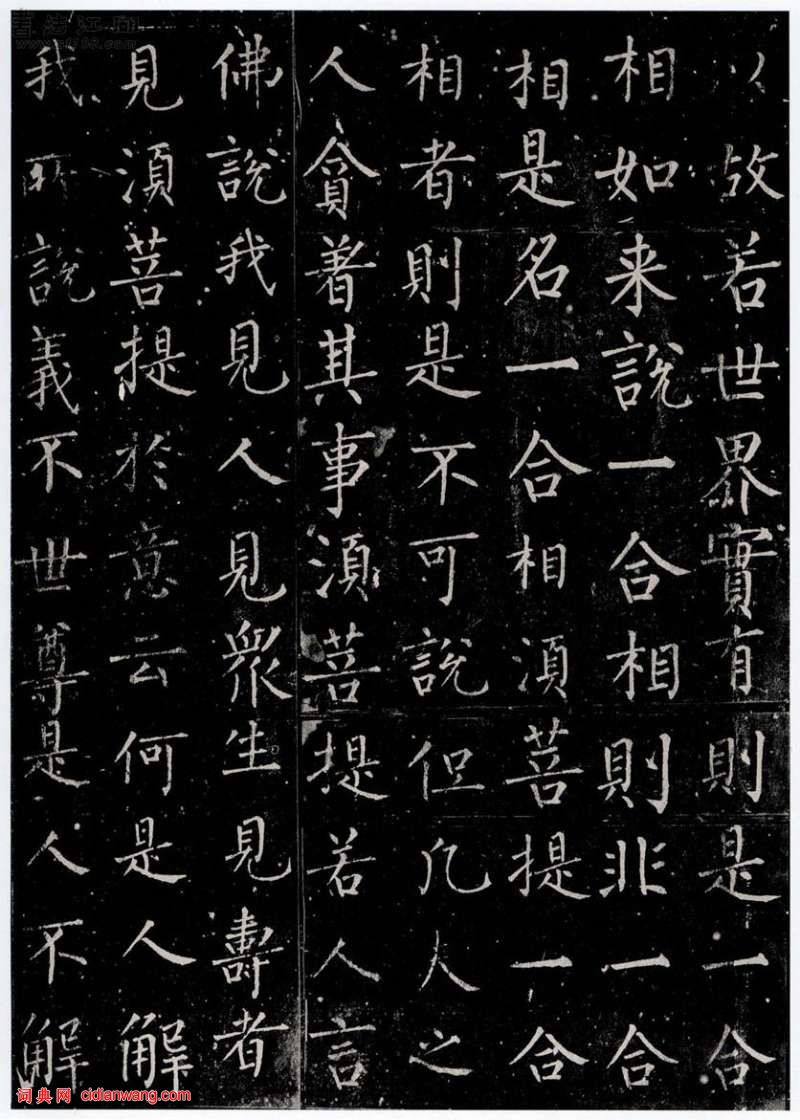 以故若世界實有則是一合
相如来說一合相則非一合
相是名一合相湏菩提一合
相者則是不可說但凡人之
人貪著其事湏菩提若人言
佛說我見人見眾生見壽者
見湏菩提於意云何是人解
我所說義不世尊是人不解
词典网 cidianwang.com